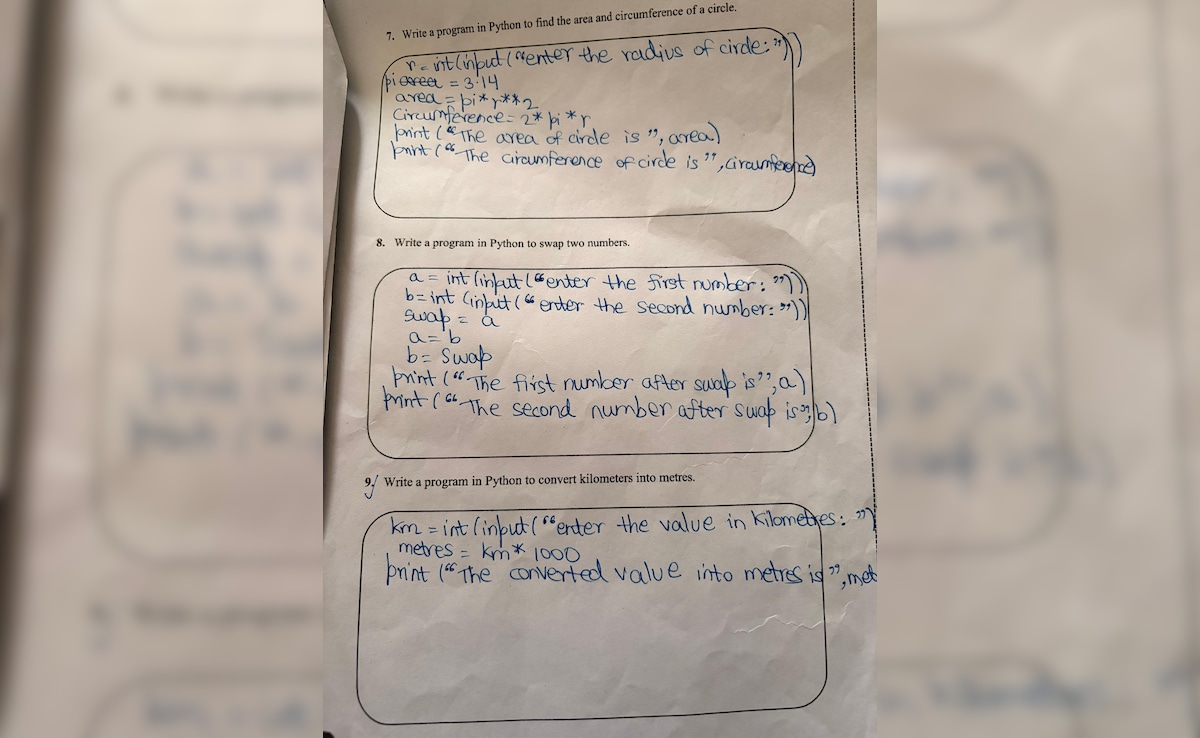 7. Write a program in Python to find the area and circumference of a circle.
r = int(input(“enter the radius of circle: ”))
pi = 3.14
area = pi*r**2
Circumference = 2* pi *r
print (“The area of circle is ”, area)
print (“The circumference of circle is ”, circumference)
8. Write a program in Python to swap two numbers.
a = int (input (“enter the first number: ”))
b = int (input (“ enter the second number: ”))
swap = a
a = b
b = Swap
print (“The first number after swap is”, a)
print (“The second number after swap is”, b)
9. Write a program in Python to convert kilometers into metres.
km = int (input (“enter the value in kilometres: ”)
metres = km* 1000
print (“The converted value into metres is ”, met